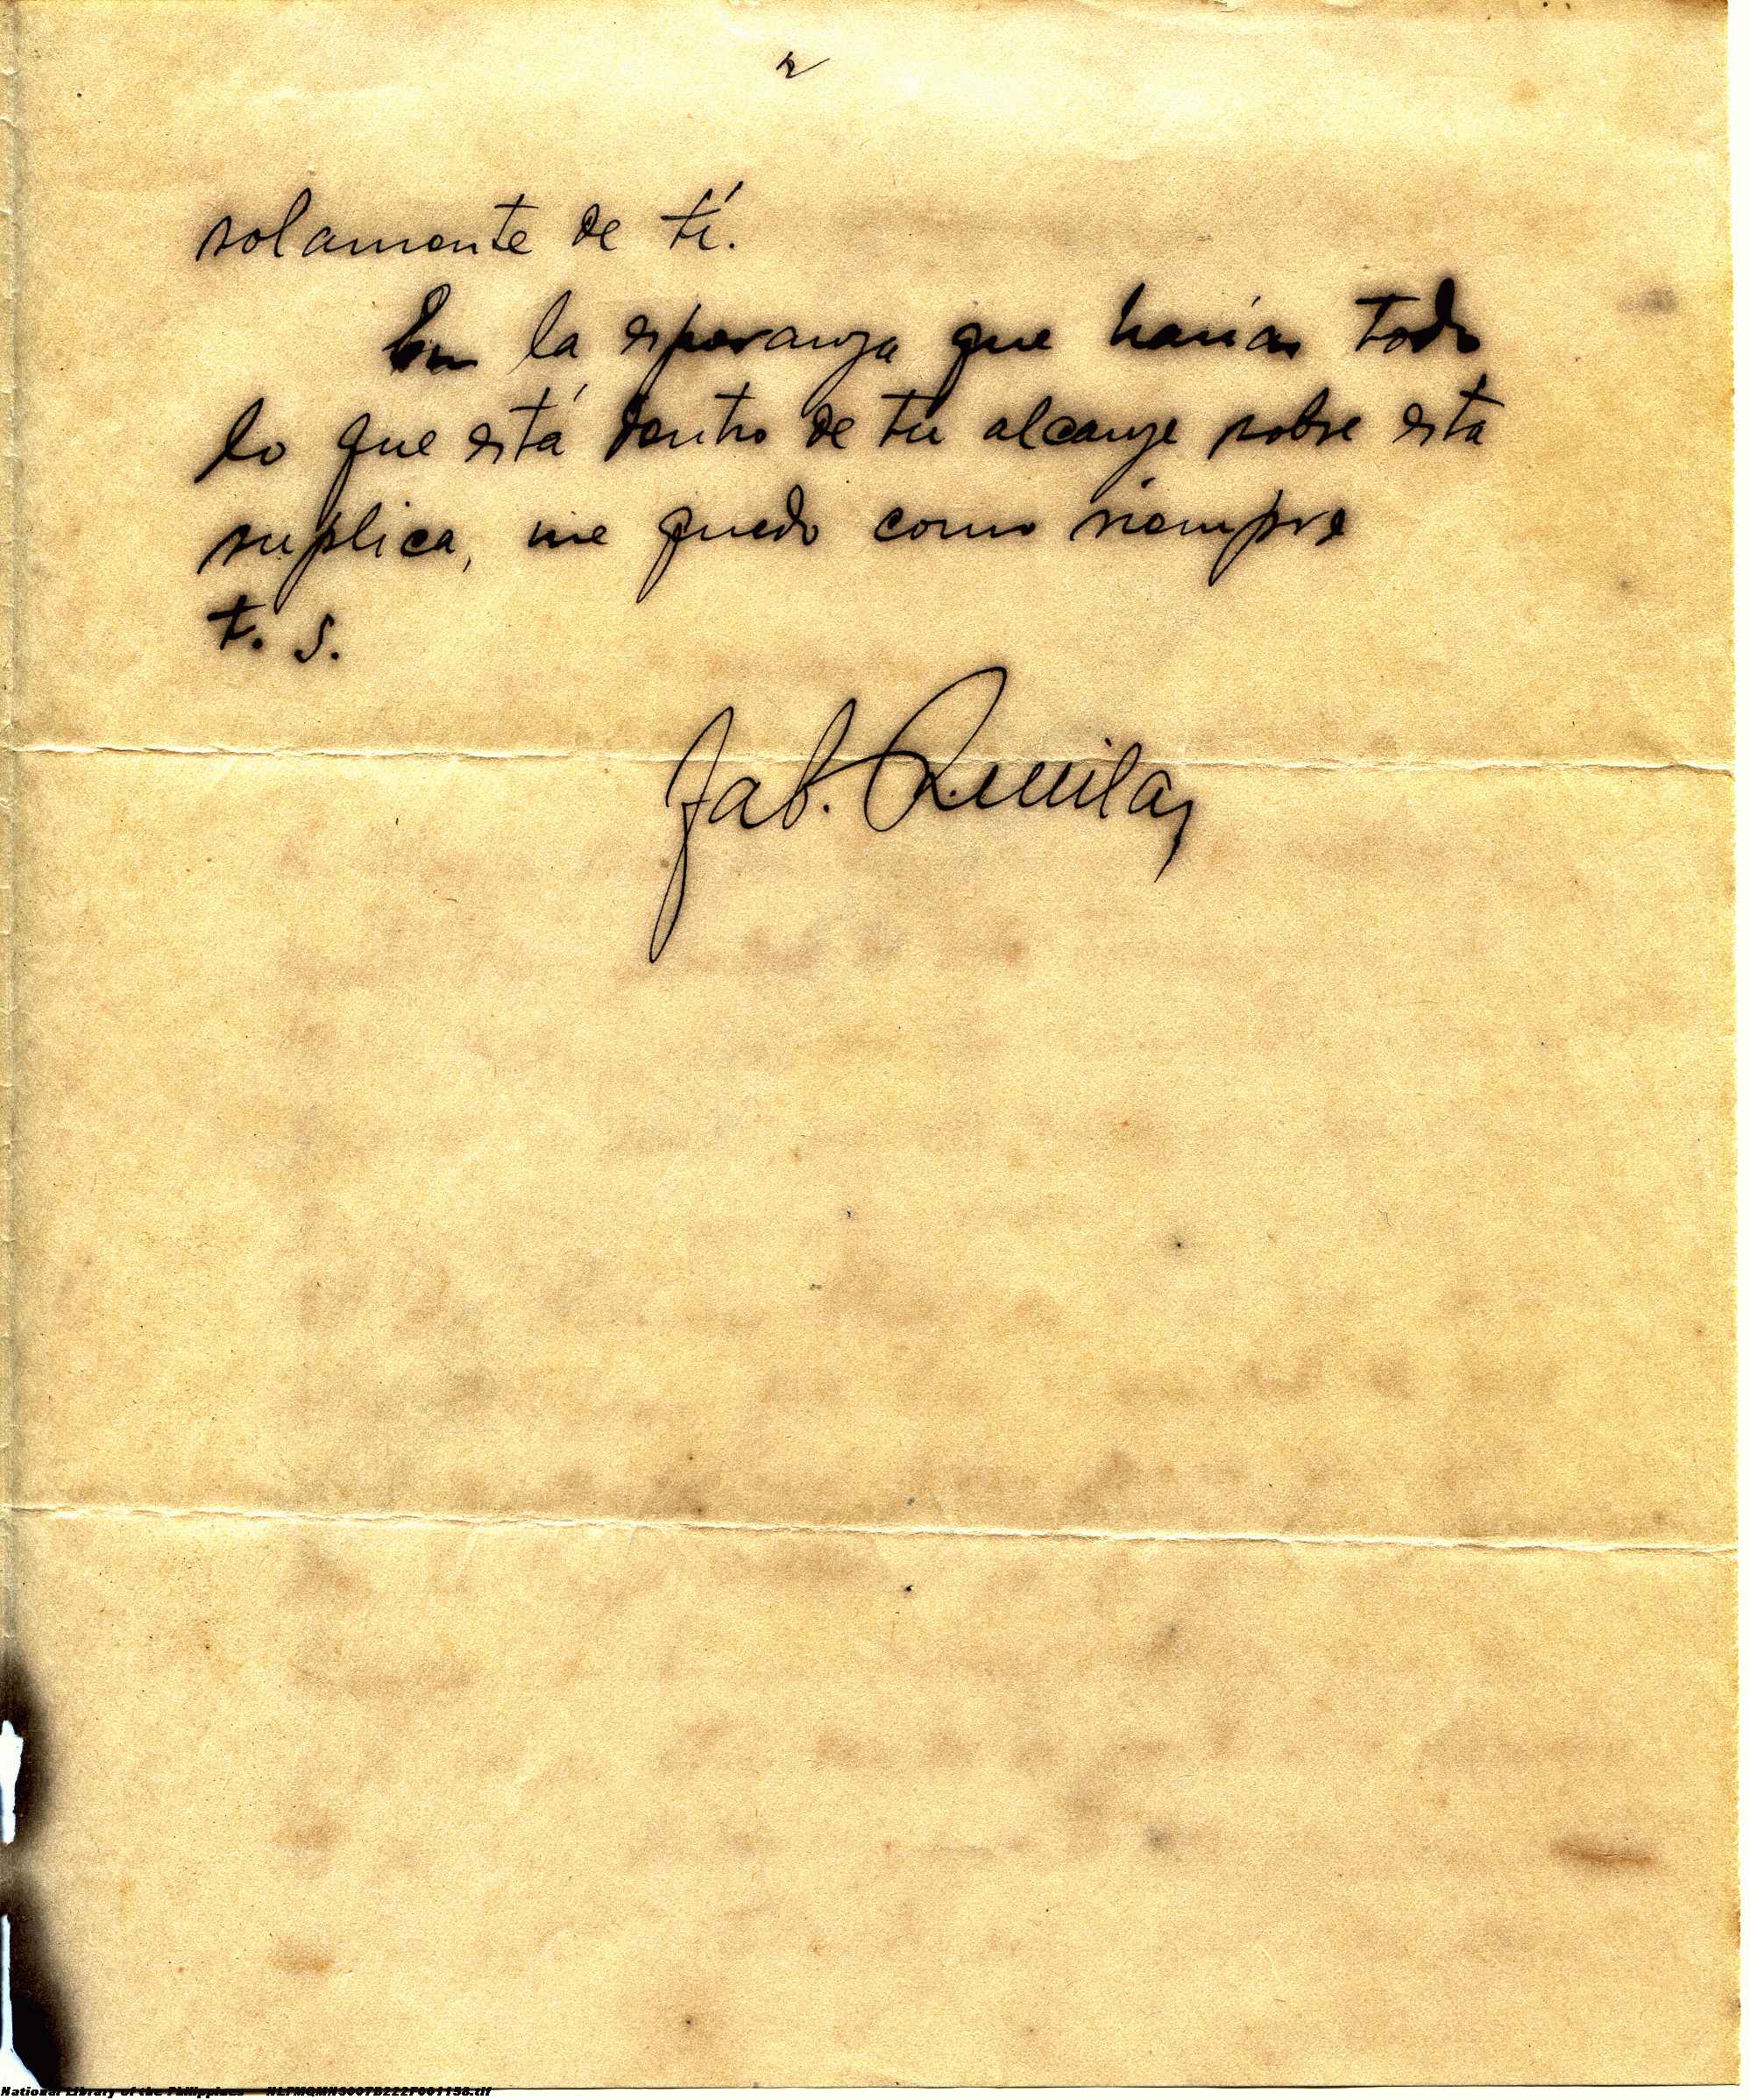 2
solamente de tí.
En la esperanza que harías todo
lo que está dentro de tu alcanze sobre esta
suplica, me quedo como siempre
t. s.
National Library of the Philippines